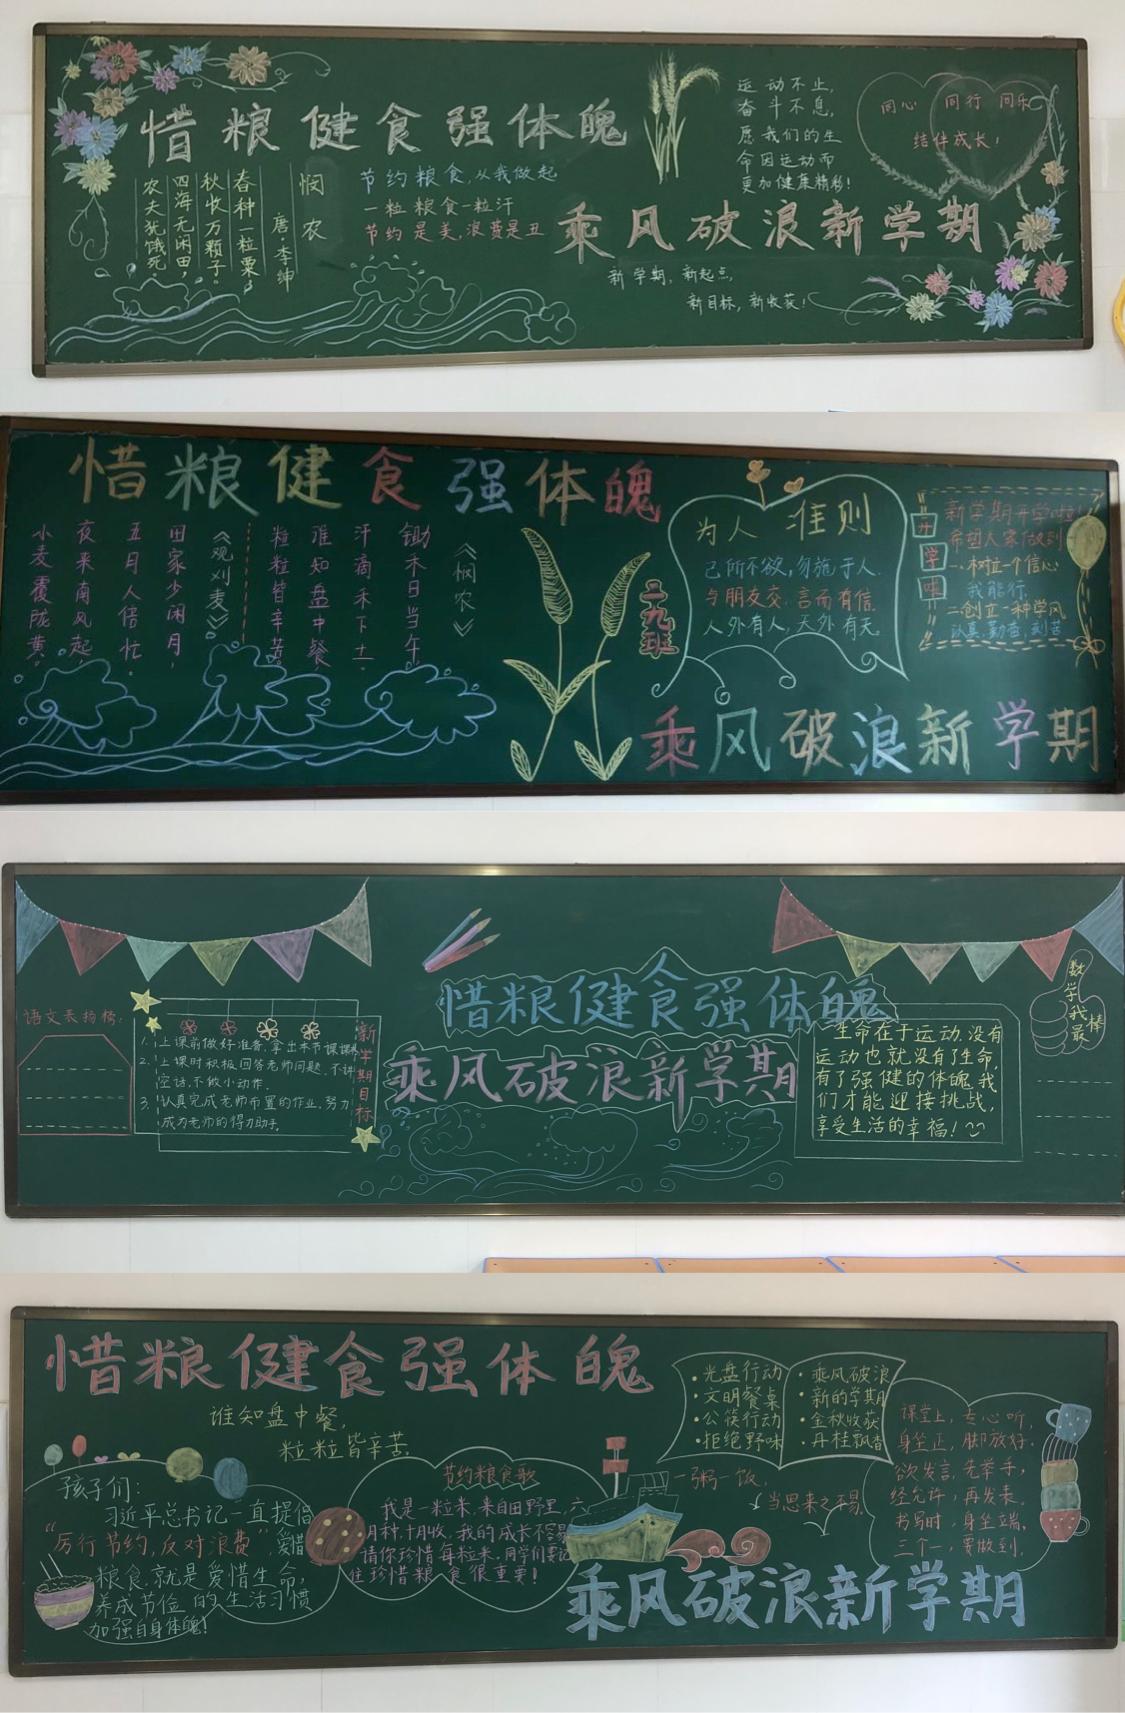 惜粮健食强体魄
悯农
唐·李绅
春种一粒粟，
秋收万颗子。
四海无闲田，
农夫犹饿死。
节约粮食，从我做起
一粒粮食一粒汗
节约是美，浪费是丑
运动不止，
奋斗不息，
愿我们的生
命因运动而
更加健康精彩！
同心 同行 同乐
结伴成长！
乘风破浪新学期
新学期，新起点，
新目标，新收获！
惜粮健食强体魄
《悯农》
锄禾日当午，
汗滴禾下土
谁知盘中餐
粒粒皆辛苦。
《观刈麦》
田家少闲月，
五月人倍忙。
夜来南风起，
小麦覆陇黄。
二九班
为人准则
己所不欲，勿施于人.
与朋友交，言而有信.
人外有人，天外有天。
开学啦
新学期开学啦！
希望大家做到
一、树立一个信心
我能行。
二.创立一种学风
认真，勤奋，刻苦
乘风破浪新学期
惜粮健食强体魄
乘风破浪新学期
语文表扬榜：
新学期目标
1. 上课前做好准备，拿出本节课课本
2. 上课时积极回答老师问题，不讲
空话，不做小动作.
3. 认真完成老师布置的作业，努力
成为老师的得力助手。
生命在于运动，没有
运动也就没有了生命，
有了强健的体魄，我
们才能迎接挑战，
享受生活的幸福！
数学我最棒
惜粮健食强体魄
谁知盘中餐，
粒粒皆辛苦。
孩子们：
习近平总书记一直提倡
“厉行节约，反对浪费”，爱惜
粮食就是爱惜生命，
养成节俭的生活习惯
加强自身体魄！
节约粮食歌
我是一粒米，来自田野里，六
月种，十月收，我的成长不容易
请你珍惜每粒米，同学们要记
住珍惜粮食很重要！
·光盘行动
·文明餐桌
·公筷行动
·拒绝野味
·乘风破浪
·新的学期
·金秋收获
·丹桂飘香
一粥一饭，
当思来之不易。
课堂上，专心听，
身坐正，脚放好.
欲发言，先举手，
经允许，再发表.
书写时，身坐端，
三个一，要做到.
乘风破浪新学期